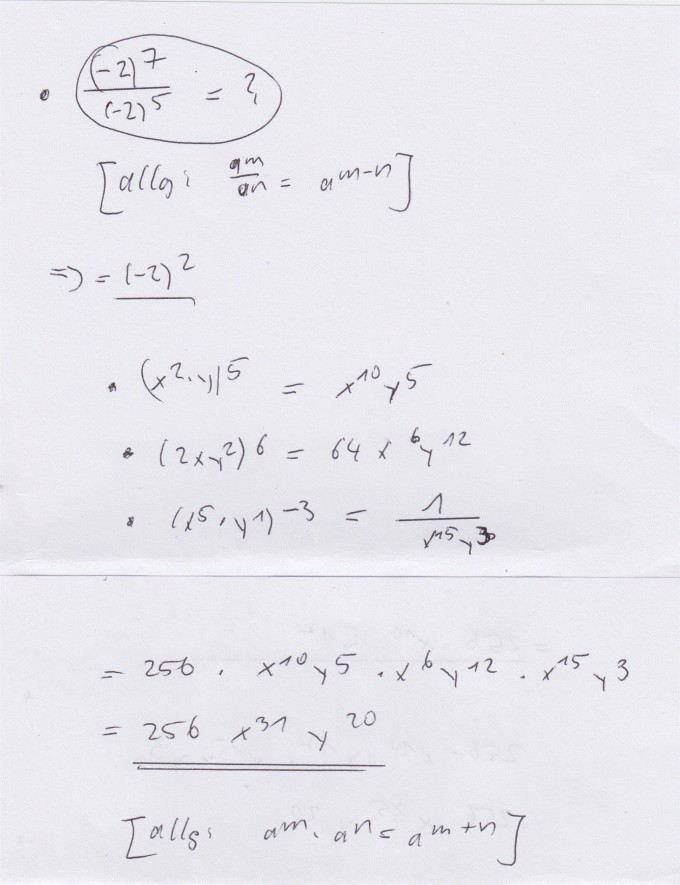 • (-2)^7 / (-2)^5 = ?
[allg: a^m / a^n = a^m-n]
=> = (-2)^2
• (x^2·y)^5 = x^10 y^5
• (2xy^2)^6 = 64 x^6 y^12
• (x^5·y^1)^-3 = 1 / x^15 y^3
= 256 · x^10 y^5 · x^6 y^12 · x^15 y^3
= 256 x^31 y^20
[allg: a^m · a^n = a^m+n]